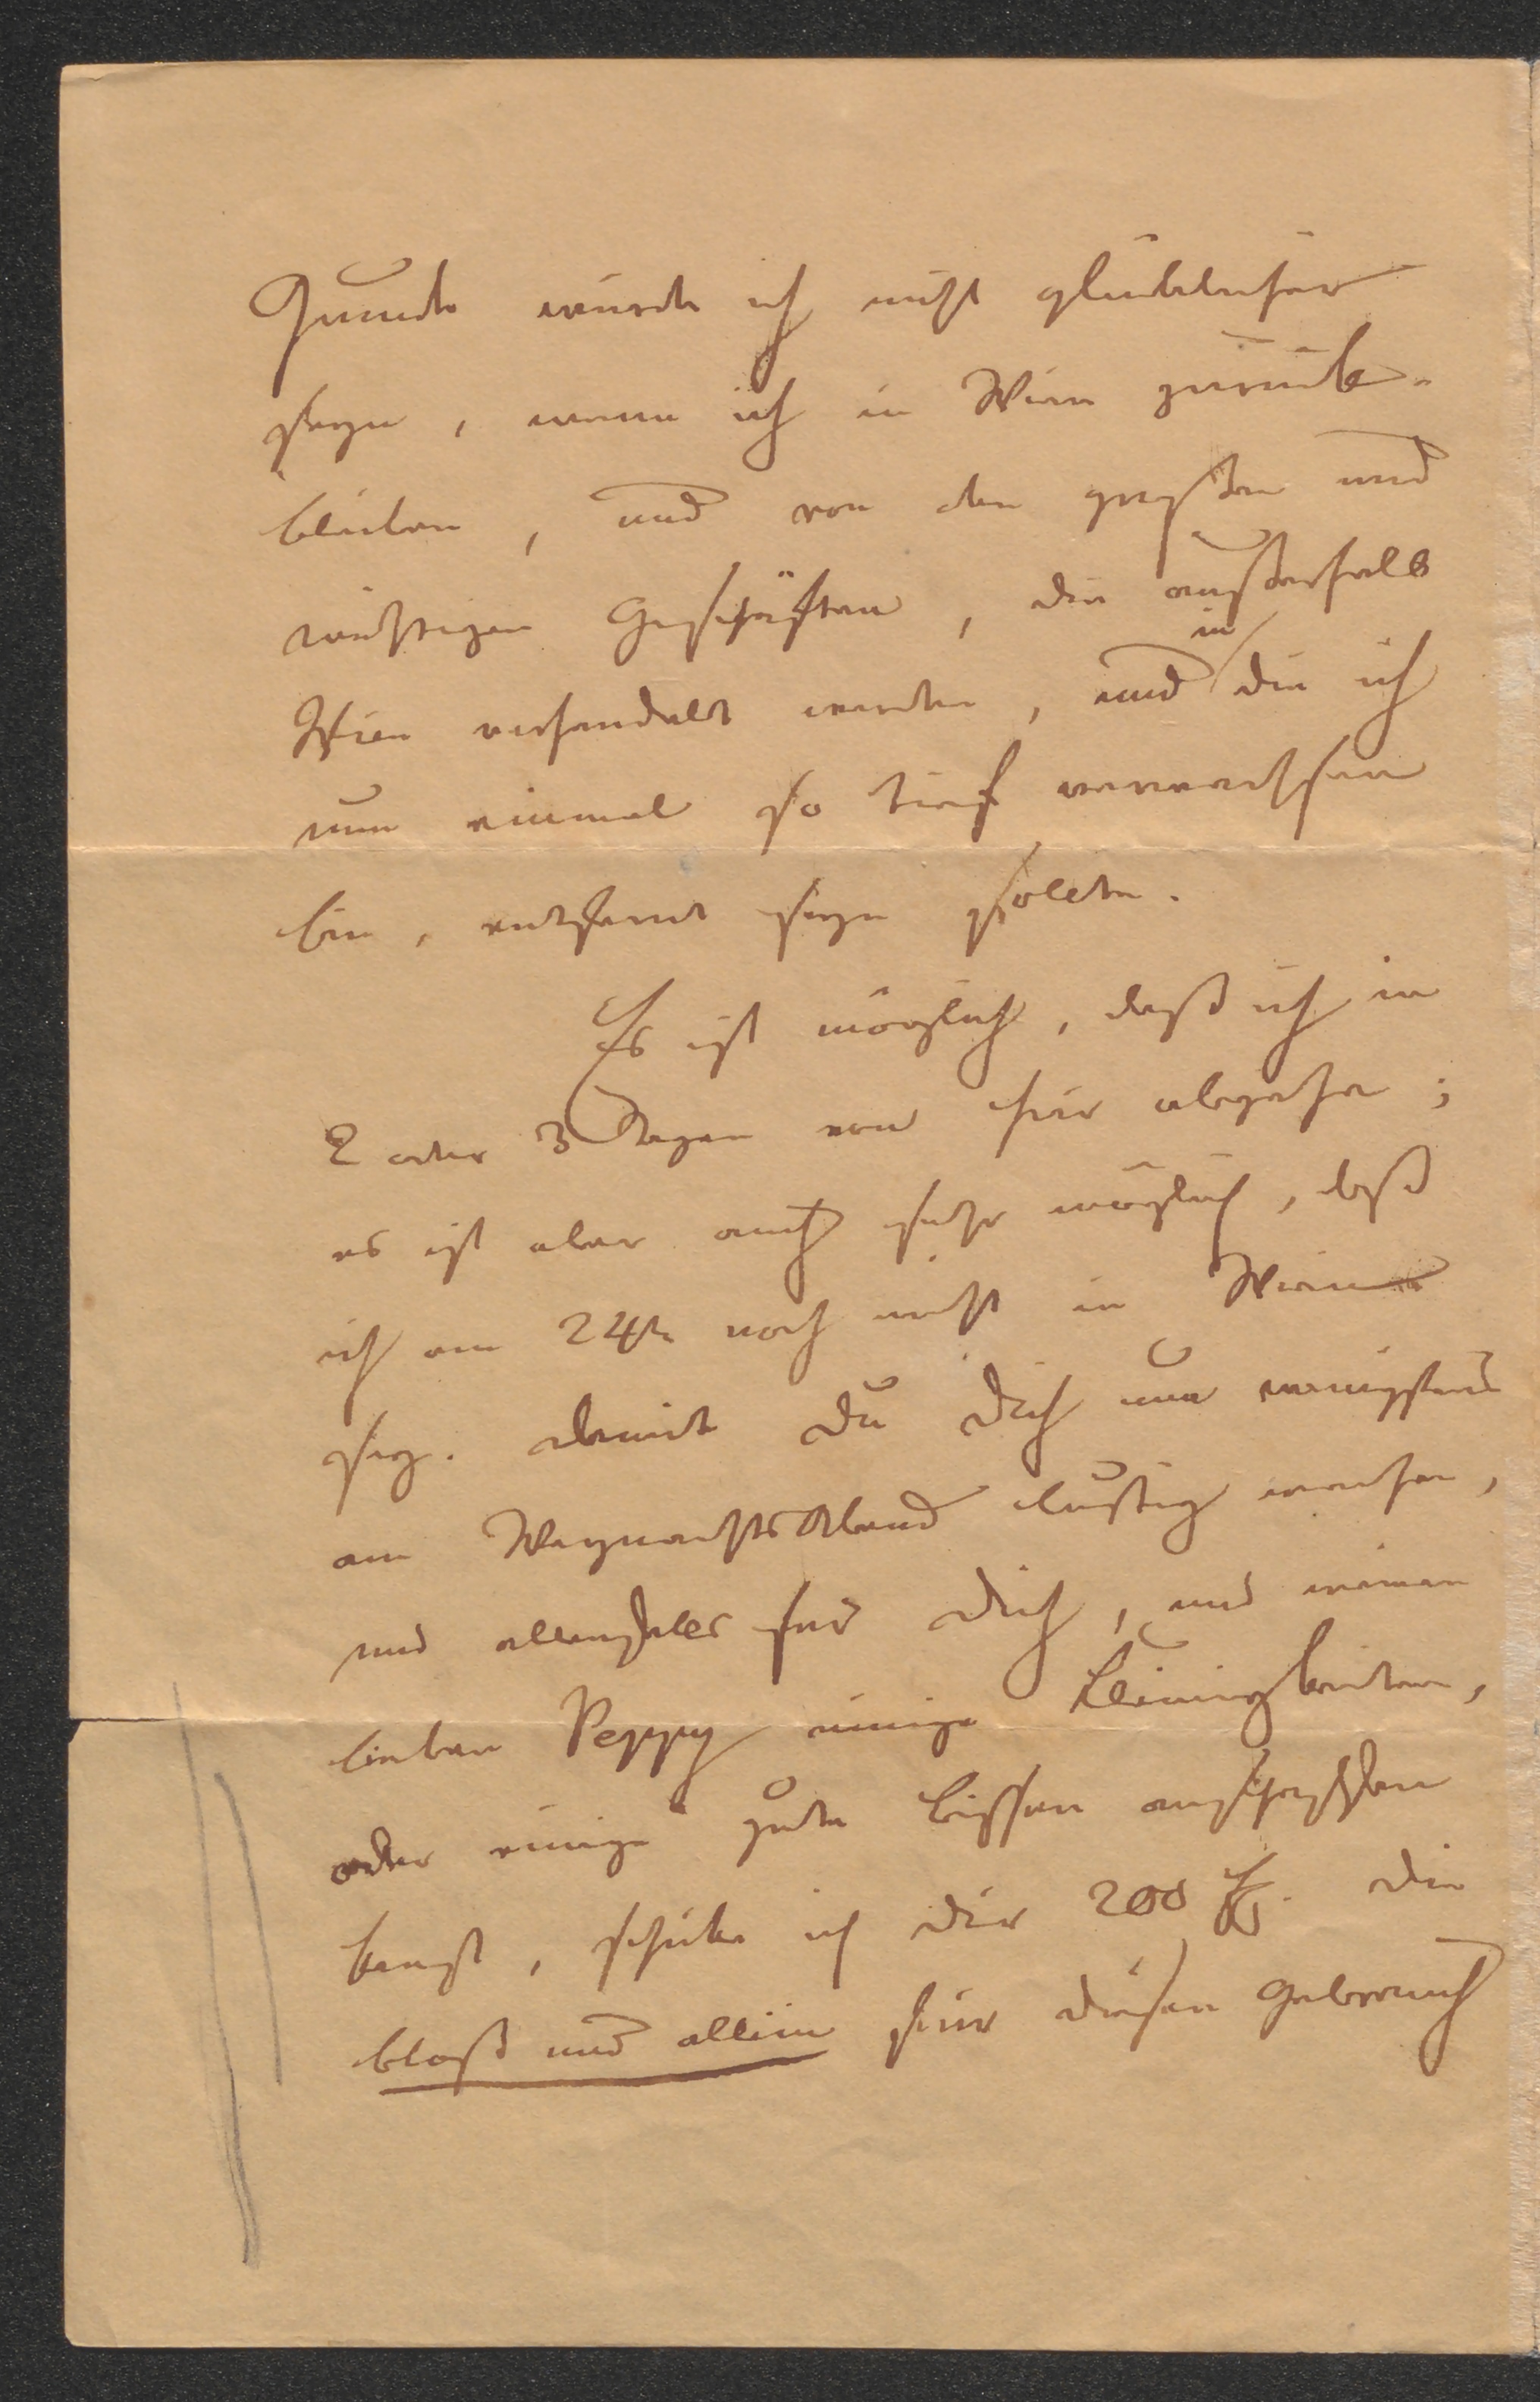 Grunde würde ich nicht glücklicher
seyn, wenn ich in Wien zurück-
bleiben, und von den großen und
wichtigen Geschäften, die außerhalb
Wien verhandelt werden, und in die ich
nun einmal so tief verwachsen
bin, entfernt seyn sollte.
Es ist möglich, daß ich in
2 oder 3 Tagen von hier abgehe;
es ist aber auch sehr möglich, daß
ich am 24t noch nicht in Wien
sey. damit Du Dich nun wenigstens
am WeynachtsAbend lustig machen,
und allenfalls für Dich, und meinen
lieben Peppy einige Kleinigkeiten,
oder einige gute Bissen anschaffen
kanst, schicke ich Dir 200 f. die
bloß und allein für diesen Gebrauch